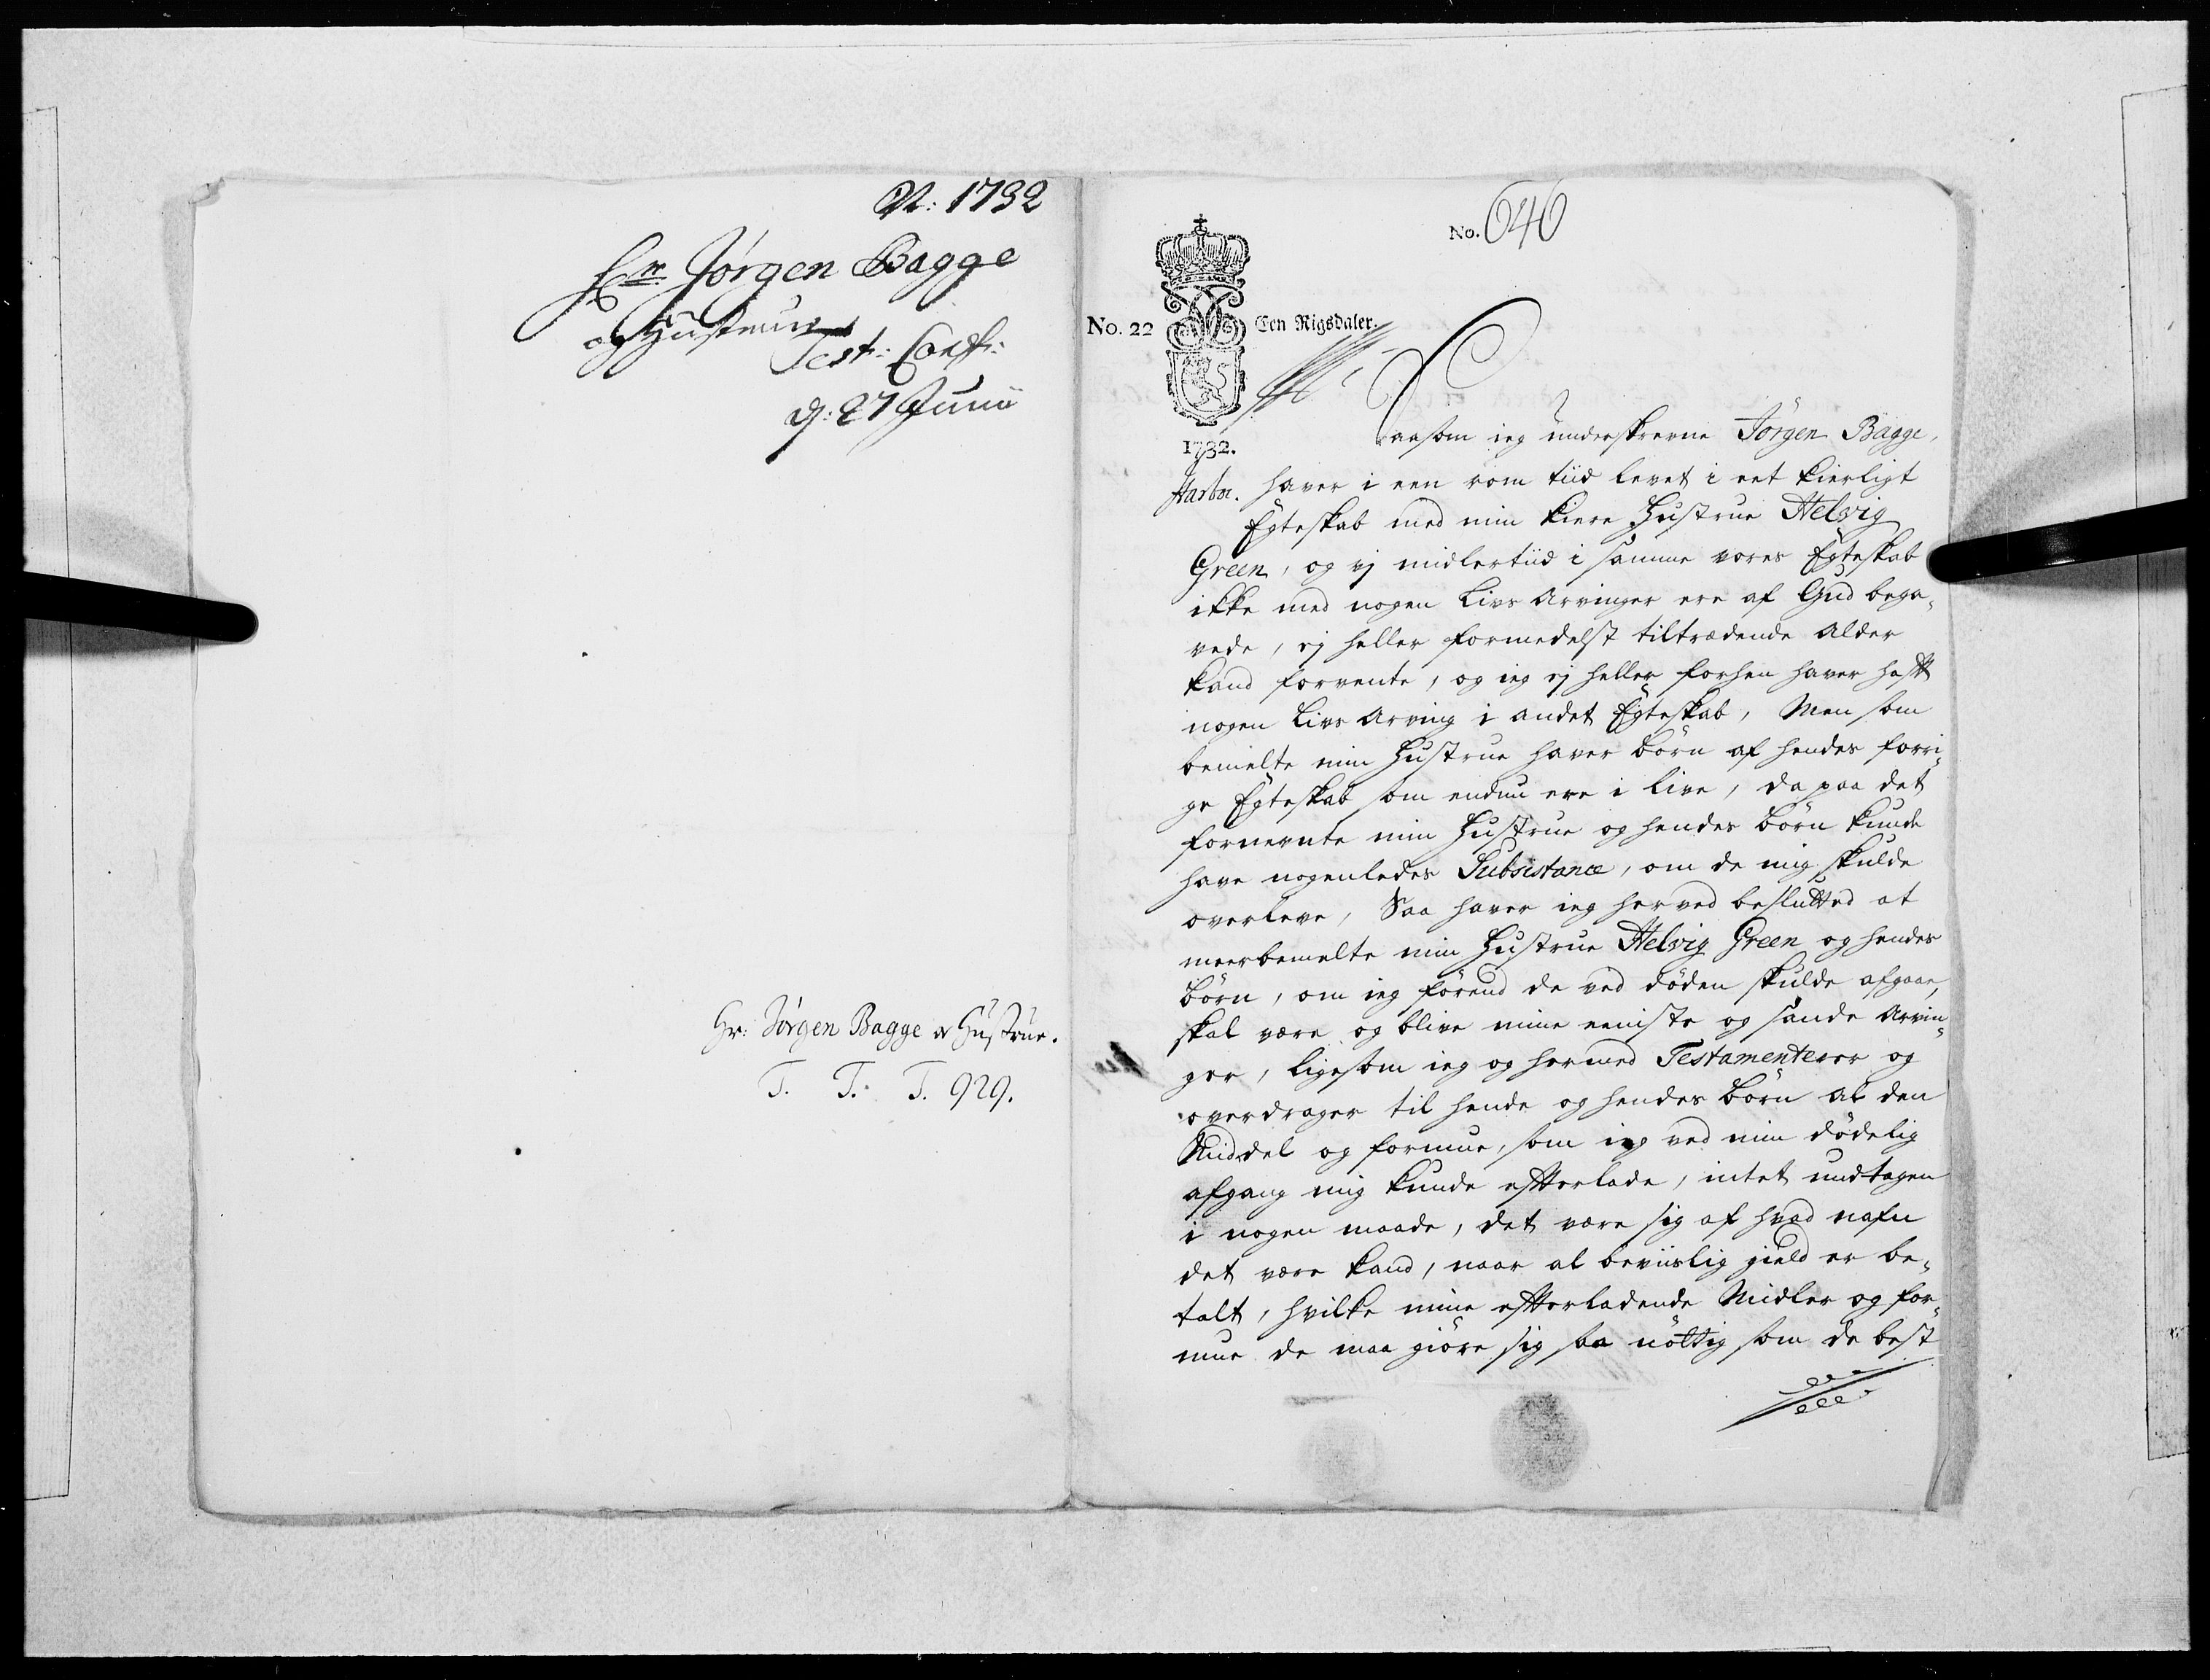 A: 1732
Hr. Jørgen Bagge
og Hustrue
Test: Conf:
d: 27 Junii
Hr: Jørgen Bagge og Hustrue.
T. T. T. 929.
No. 646
No. 22
Een Rigsdaler.
1732.
Saasom ieg underskrevne Jörgen Bagge,
haver i een rom tiid levet i eet kierligt
Egteskab med min kiere Hustrue Helvig
Green, og vj midlertiid i samme vores Egteskab
ikke med nogen Livs Arvinger ere af Gud bega„
vede, ej heller formedelst tiltrædende Alder
kand forvente, og ieg ej heller forhen haver hafft
nogen Livs Arving i andet Egteskab, Men som
bemelte min Hustrue haver Börn af hendes forri„
ge Egteskab som endnu ere i Live, da paa det
fornevnte min Hustrue og hendes Börn kunde
have nogenledes Subsistance, om de mig skulde
overleve, Saa haver ieg herved beslutted at
meerbemelte min Hustrue Helvig Green og hendes
Börn, om ieg förend de ved döden skulde afgaae,
skal være og blive mine eeniste og sande Arvin„
ger, ligesom ieg og hermed Testamenterer og
overdrager til hende og hendes Börn al den
Middel og formue, som ieg ved min dödelig
afgang mig kunde efterlade, intet undtagen
i nogen maade, det være sig af hvad nafn
det være kand, naar al beviislig gield er be„
talt, hvilke mine efterladende Midler og for„
mue de maa giöre sig saa nöttig som de best